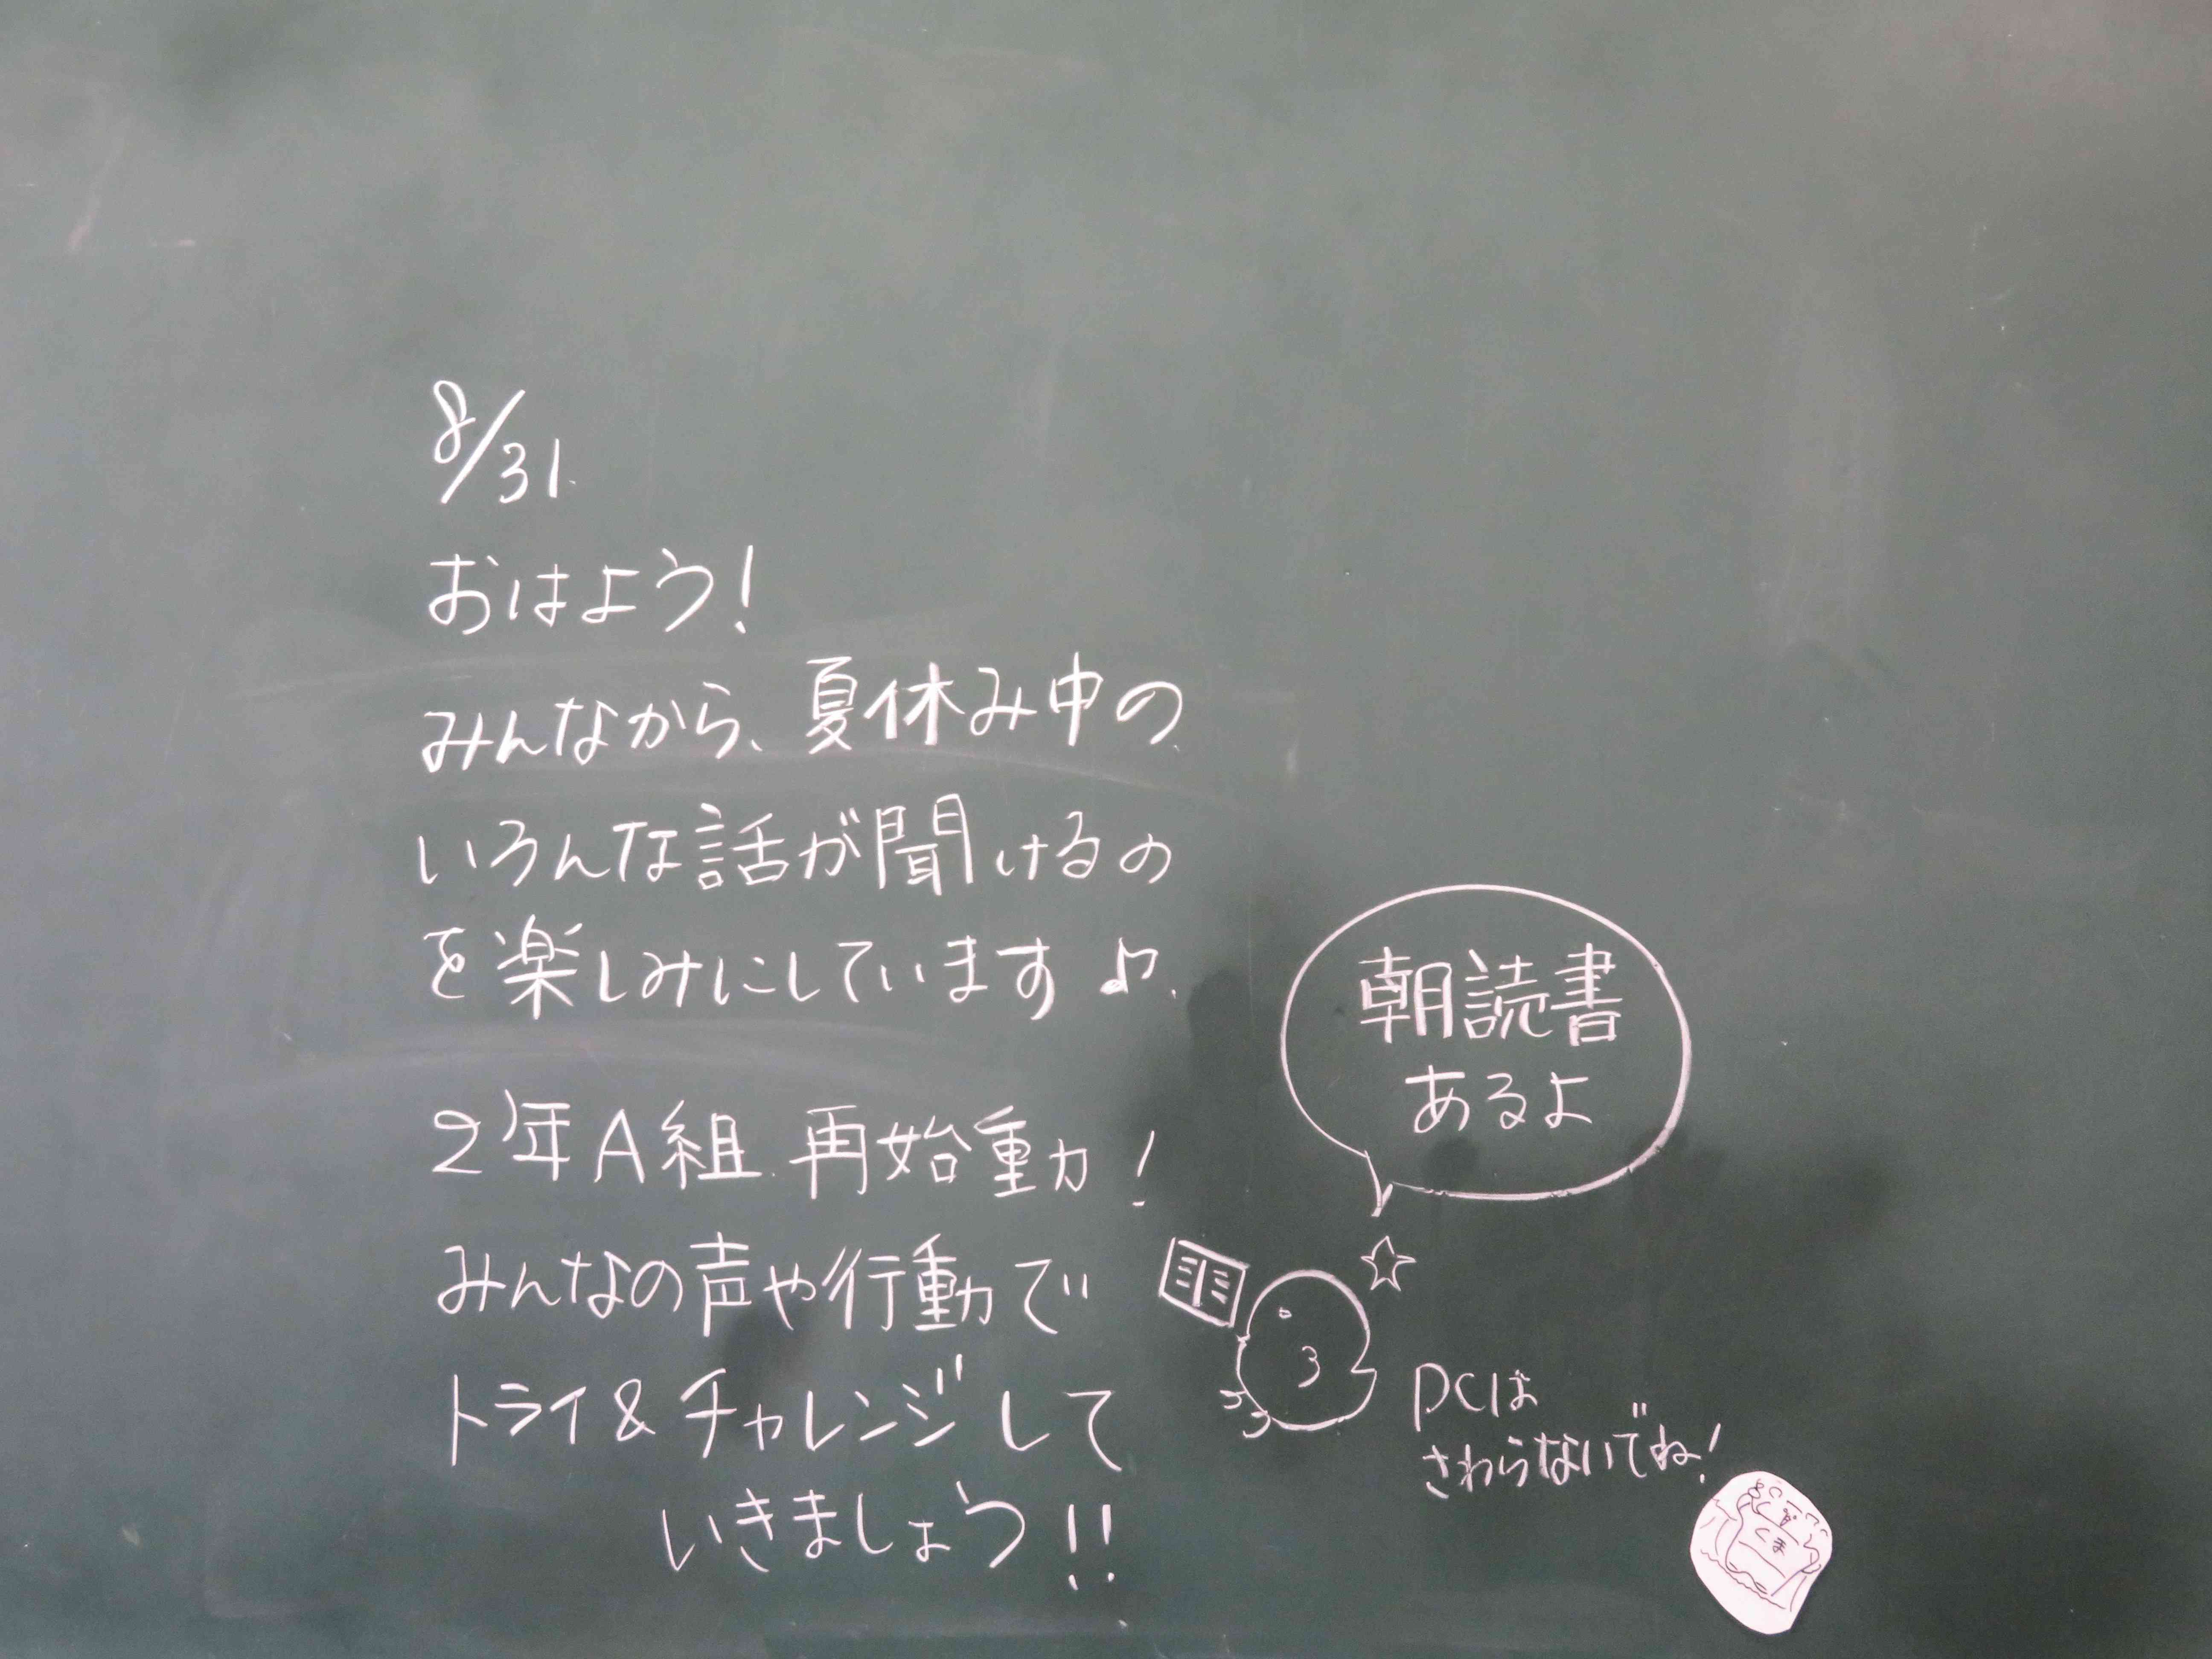 8/31.
おはよう!
みんなから、夏休み中の
いろんな話が聞けるの
を楽しみにしています♪.
2年A組.再始動!
みんなの声や行動で
トライ&チャレンジして
いきましょう!!
朝読書
あるよ
PCは
さわらないでね!